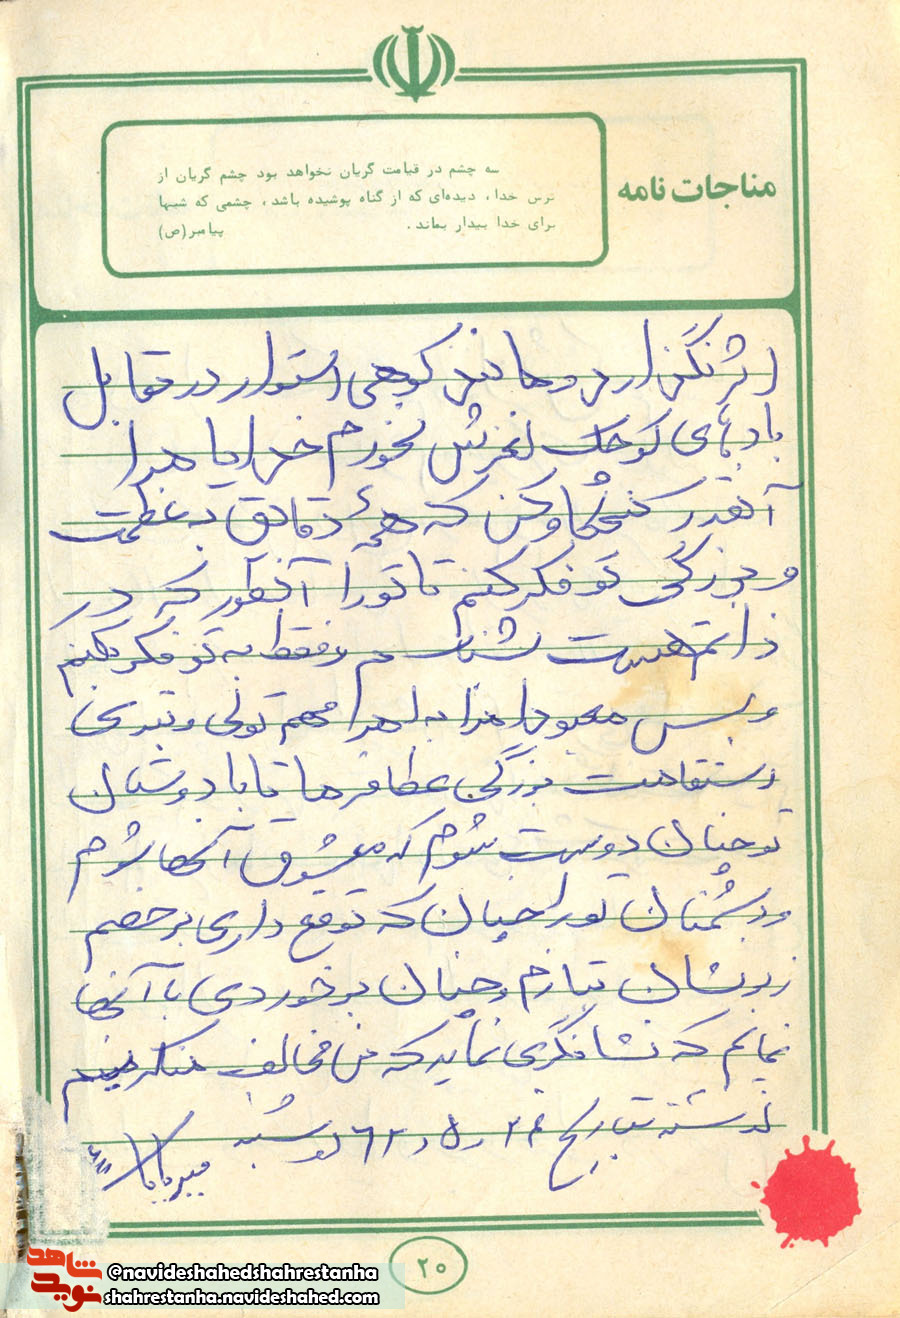 مناجات نامه
سه چشم در قیامت گریان نخواهد بود چشم گریان از
ترس خدا، دیده‌ای که از گناه پوشیده باشد، چشمی که شبها
برای خدا بیدار بماند. پیامبر(ص)
اثر نگذارد و مانند کوهی استوار در مقابل
بادهای کوچک لغزش نخورم خدایا مرا
آنقدر کنجکاو کن که همهٔ دقایق به عظمت
و بزرگی تو فکر کنم تا تو را آنطور که در
ذاتم هست شناسم و فقط به تو فکر کنم
و بس معبودا مرا به امر مهم تولی و تبری
استقامت بزرگی عطا فرما تا با دوستان
تو چنان دوست شوم که معشوق آنها شوم
و دشمنان تو را چنان که توقع داری بر خصم
زبونشان بتازم و چنان برخوردی با آنها
نمایم که نشانگری نماید که من مخالف منکر هستم
نوشته بتاریخ ۶۲ر۵ر۲۴ دوشنبه
میربابا
۲۰
شاهد
نوید
@navideshahedshahrestanha
shahrestanha.navideshahed.com